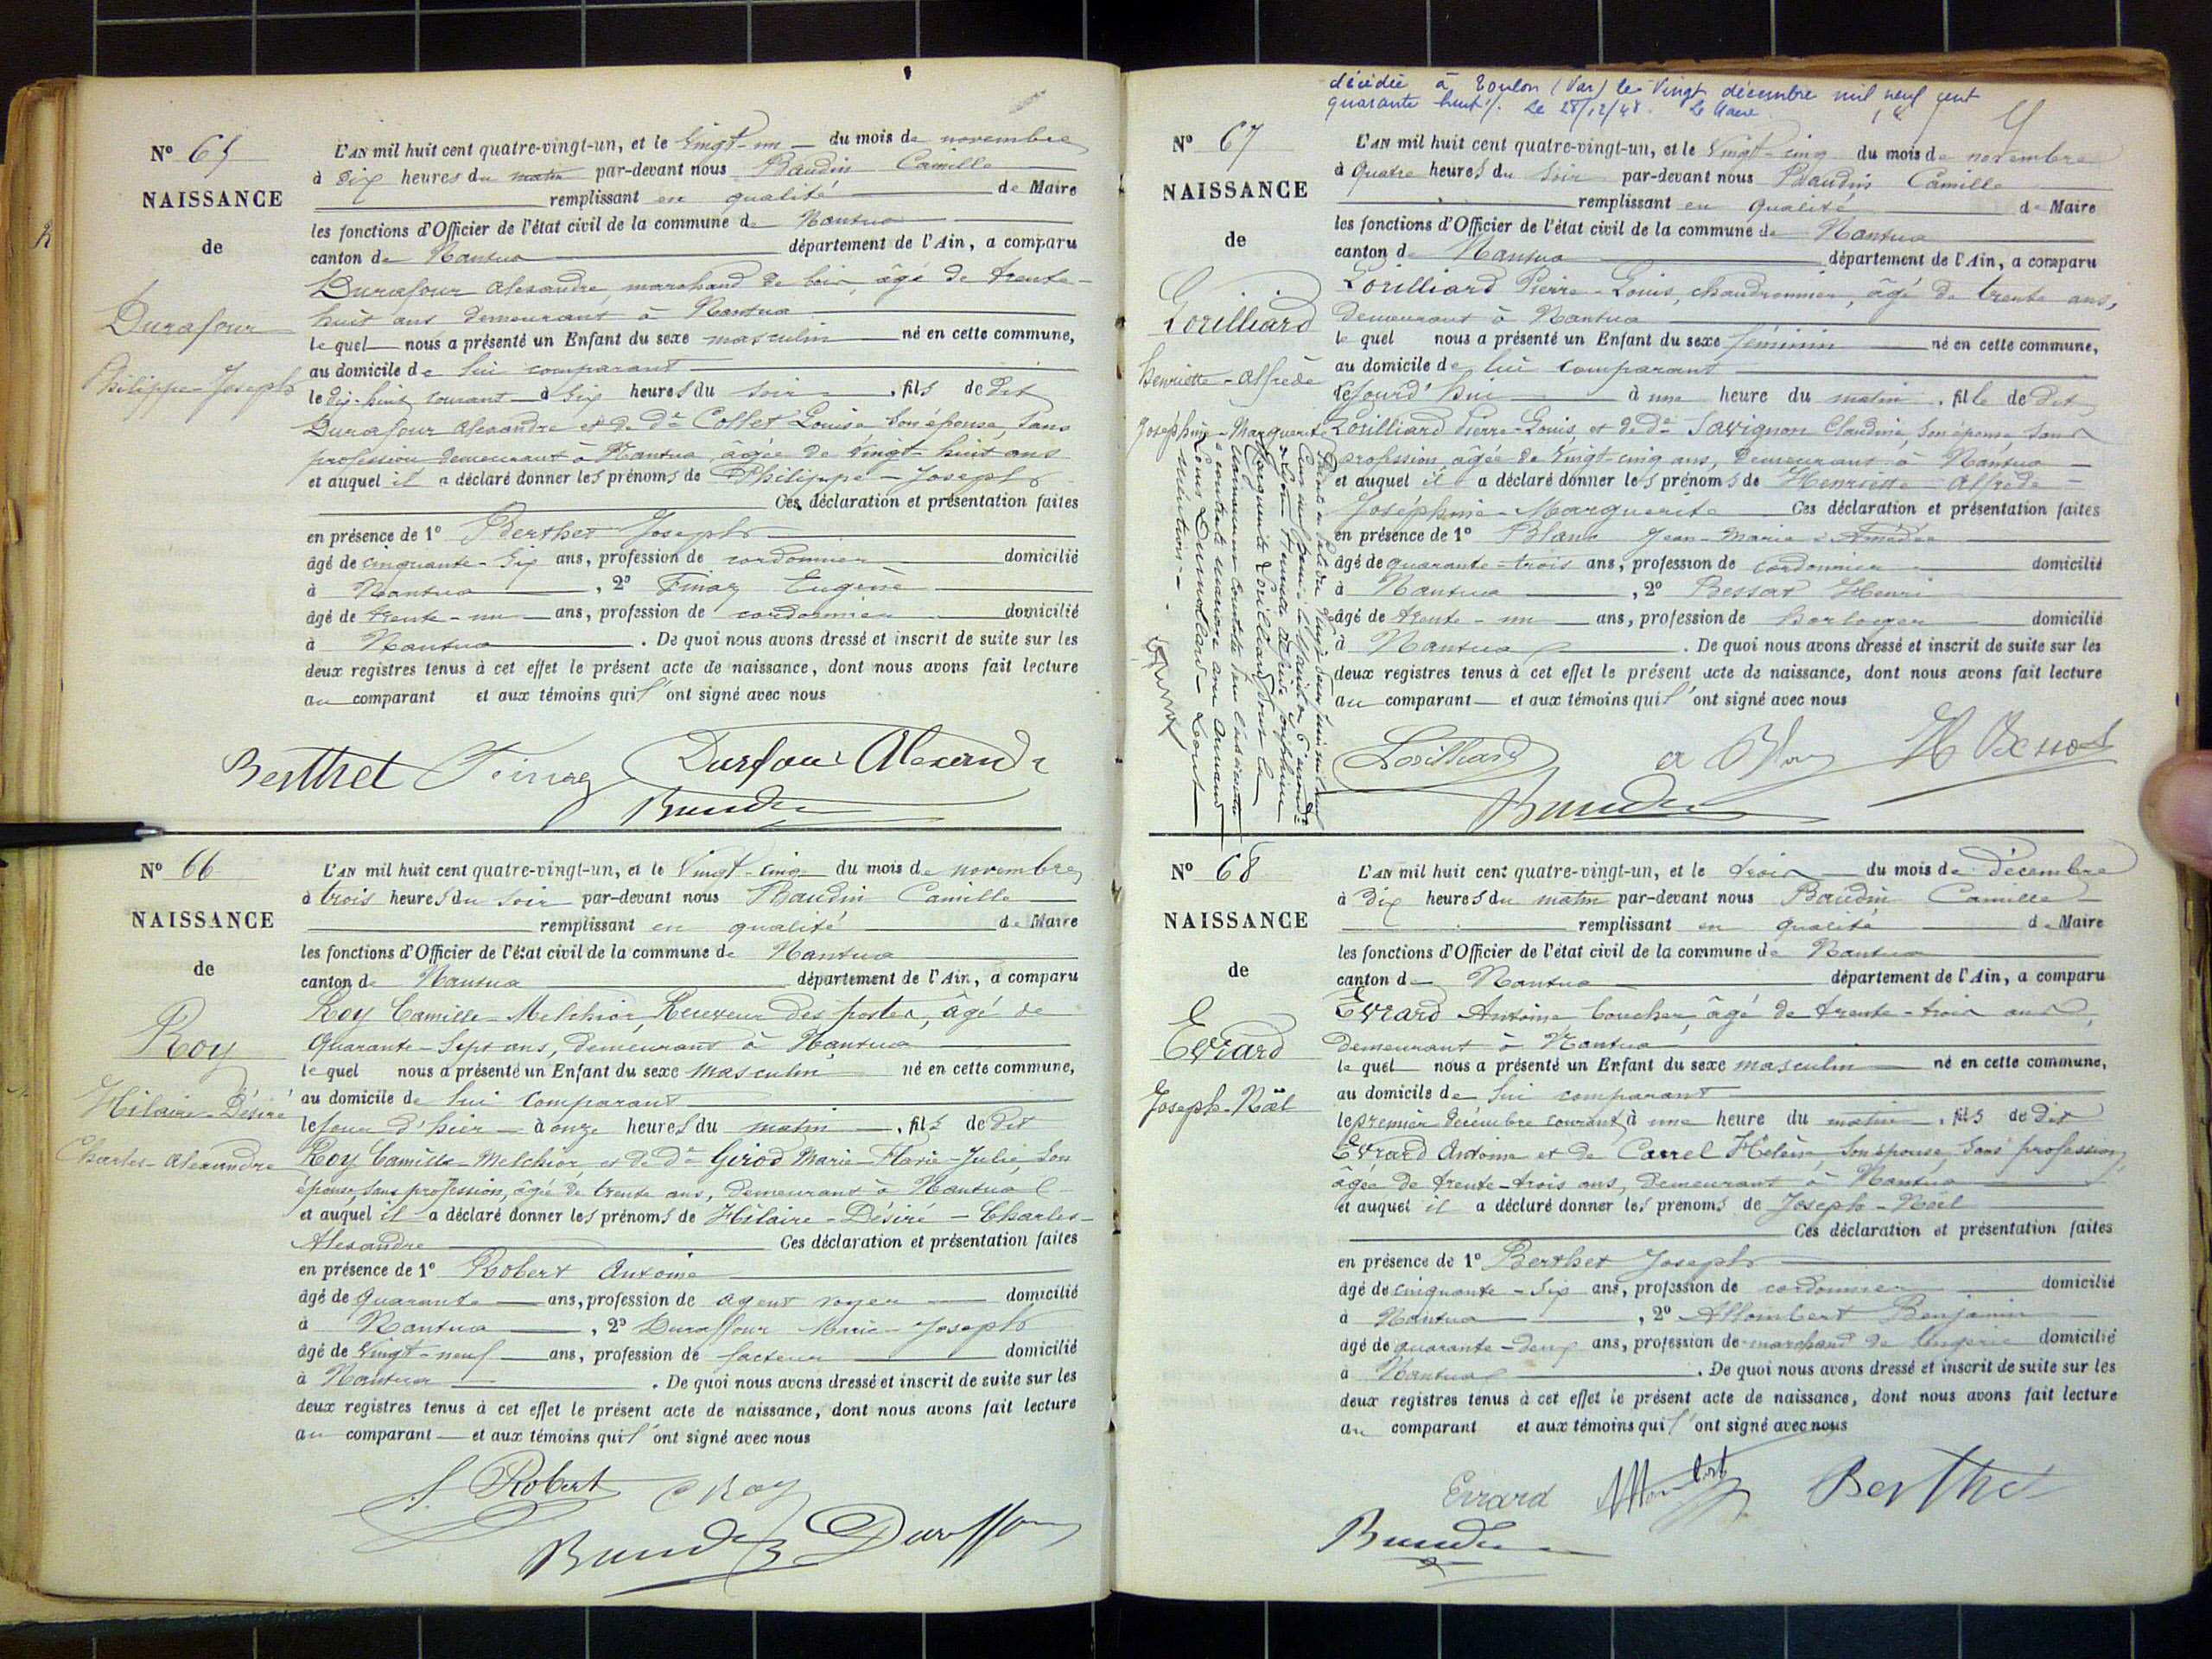 Nº 65
NAISSANCE
de
Durafour
Philippe-Joseph
L'AN mil huit cent quatre-vingt-un, et le Vingt-un du mois de novembre
à Dix heures du matin par-devant nous Baudin Camille
remplissant en qualité de Maire
les fonctions d'Officier de l'état civil de la commune de Nantua
canton de Nantua département de l'Ain, a comparu
Durafour Alexandre, marchand de bois, âgé de trente-
huit ans demeurant à Nantua
lequel nous a présenté un Enfant du sexe masculin né en cette commune,
au domicile de lui comparant
le dix-huit courant à six heures du soir, fils de dit
Durafour Alexandre et de De Collet Louise son épouse, sans
profession demeurant à Nantua, âgée de vingt-huit ans
et auquel il a déclaré donner les prénoms de Philippe-Joseph
Ces déclaration et présentation faites
en présence de 1º Berthet Joseph
âgé de cinquante-six ans, profession de cordonnier domicilié
à Nantua, 2º Finaz Eugène
âgé de trente-un ans, profession de cordonnier domicilié
à Nantua. De quoi nous avons dressé et inscrit de suite sur les
deux registres tenus à cet effet le présent acte de naissance, dont nous avons fait lecture
au comparant et aux témoins qui l'ont signé avec nous
Berthet Finaz Durafour Alexandre
Baudin
Nº 66
NAISSANCE
de
Roy
Hilaire-Désiré
Charles-Alexandre
L'AN mil huit cent quatre-vingt-un, et le Vingt-cinq du mois de novembre
à trois heures du soir par-devant nous Baudin Camille
remplissant en qualité de Maire
les fonctions d'Officier de l'état civil de la commune de Nantua
canton de Nantua département de l'Ain, a comparu
Roy Camille-Melchior, Receveur des postes, âgé de
Quarante-sept ans, demeurant à Nantua
lequel nous a présenté un Enfant du sexe masculin né en cette commune,
au domicile de lui comparant
le jour d'hier à onze heures du matin, fils de dit
Roy Camille-Melchior et de De Girod Marie-Flavie-Julie, son
épouse, sans profession, âgée de trente ans, demeurant à Nantua
et auquel il a déclaré donner les prénoms de Hilaire-Désiré-Charles-
Alexandre Ces déclaration et présentation faites
en présence de 1º Robert Antoine
âgé de quarante ans, profession de agent voyer domicilié
à Nantua, 2º Duraffour Marie-Joseph
âgé de vingt-neuf ans, profession de facteur domicilié
à Nantua. De quoi nous avons dressé et inscrit de suite sur les
deux registres tenus à cet effet le présent acte de naissance, dont nous avons fait lecture
au comparant et aux témoins qui l'ont signé avec nous
Robert C Roy
Baudin Duraffour
décédée à Toulon (Var) le Vingt décembre mil neuf cent
quarante huit. Le 28/12/48. Le Maire
Nº 67
NAISSANCE
de
Lorilliard
Henriette-Alfrède
Joséphine-Marguerite
L'AN mil huit cent quatre-vingt-un, et le Vingt-cinq du mois de novembre
à Quatre heures du soir par-devant nous Baudin Camille
remplissant en qualité de Maire
les fonctions d'Officier de l'état civil de la commune de Nantua
canton de Nantua département de l'Ain, a comparu
Lorilliard Pierre-Louis, chaudronnier, âgé de trente ans,
demeurant à Nantua
lequel nous a présenté un Enfant du sexe féminin né en cette commune,
au domicile de lui comparant
cejourd'hui à une heure du matin, fille de dit
Lorilliard Pierre-Louis, et de De Savignon Claudine, son épouse, sans
profession, âgée de Vingt-cinq ans, demeurant à Nantua
et auquel il a déclaré donner les prénoms de Henriette-Alfrède-
Joséphine-Marguerite Ces déclaration et présentation faites
en présence de 1º Blanc Jean-Marie-Amédée
âgé de quarante-trois ans, profession de cordonnier domicilié
à Nantua, 2º Bessat Henri
âgé de trente-un ans, profession de horloger domicilié
à Nantua. De quoi nous avons dressé et inscrit de suite sur les
deux registres tenus à cet effet le présent acte de naissance, dont nous avons fait lecture
au comparant et aux témoins qui l'ont signé avec nous
Lorilliard a Blanc H Bessat
Baudin
Marguerite Lorilliard
a contracté mariage avec Armand
Nº 68
NAISSANCE
de
Evrard
Joseph-Noël
L'AN mil huit cent quatre-vingt-un, et le trois du mois de Décembre
à Dix heures du matin par-devant nous Baudin Camille
remplissant en qualité de Maire
les fonctions d'Officier de l'état civil de la commune de Nantua
canton de Nantua département de l'Ain, a comparu
Evrard Antoine boucher, âgé de trente-trois ans,
demeurant à Nantua
lequel nous a présenté un Enfant du sexe masculin né en cette commune,
au domicile de lui comparant
le premier décembre courant à une heure du matin, fils de dit
Evrard Antoine et de Carrel Hélène, son épouse, sans profession,
âgée de trente-trois ans, demeurant à Nantua
et auquel il a déclaré donner les prénoms de Joseph-Noël
Ces déclaration et présentation faites
en présence de 1º Berthet Joseph
âgé de cinquante-six ans, profession de cordonnier domicilié
à Nantua, 2º Allombert Benjamin
âgé de quarante-deux ans, profession de marchand de lingerie domicilié
à Nantua. De quoi nous avons dressé et inscrit de suite sur les
deux registres tenus à cet effet le présent acte de naissance, dont nous avons fait lecture
au comparant et aux témoins qui l'ont signé avec nous
Evrard Allombert Berthet
Baudin